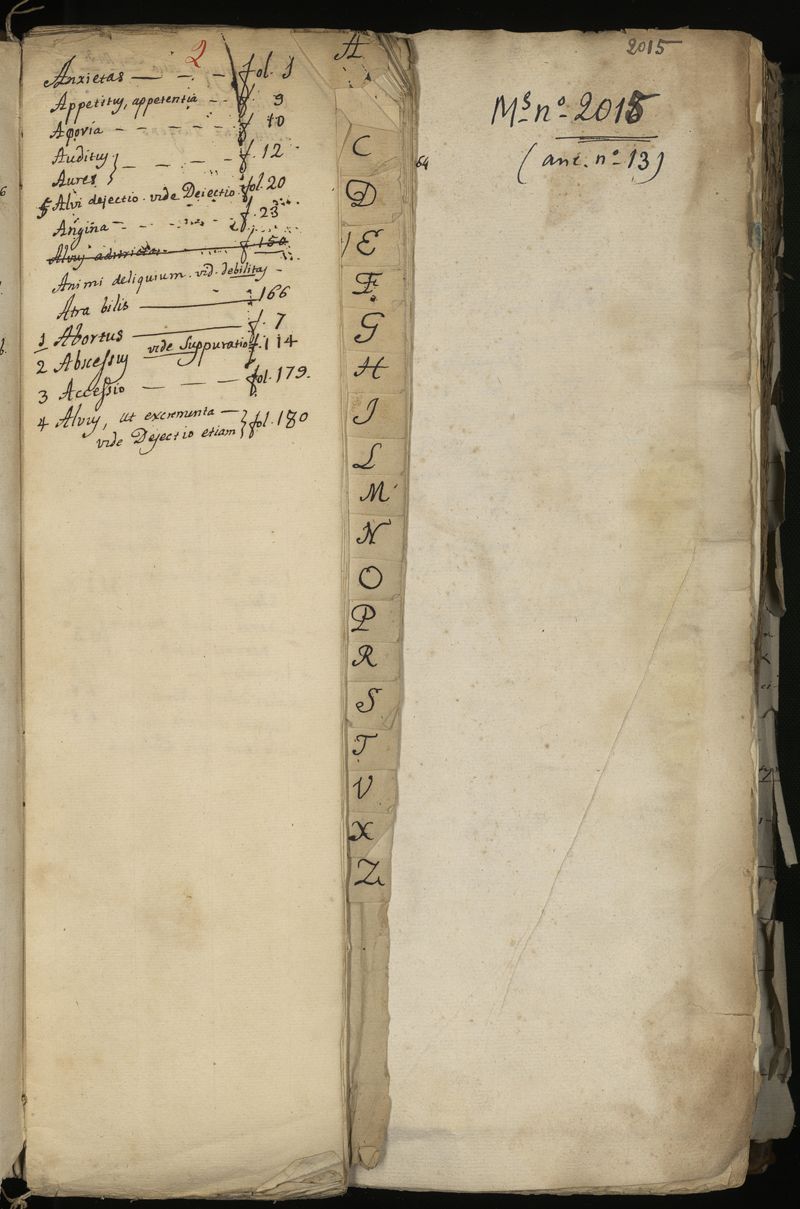 2
Anxietas — — . — fol. 1
Appetitus, appetentia - - f. 9
Aporia - - - - - f. 10
Auditus } - - - - f. 12
Aures }
5 Alvi dejectio. vide Deiectio fol. 20
Angina - - - - f. 23
Alvus adstricta - - f. 150
Animi deliquium. vid. debilitas -
Atra bilis ——— 166
1 Abortus ——— f. 7
2 Abscessus vide Suppuratio f. 114
3 Accessio — — — fol. 179.
4 Alvus, ut excrementa — } fol. 180
vide Dejectio etiam }
A
C
D
E
F
G
H
I
L
M
N
O
P
R
S
T
V
X
Z
2015
Ms nº 2015
(anc. nº 13)
64